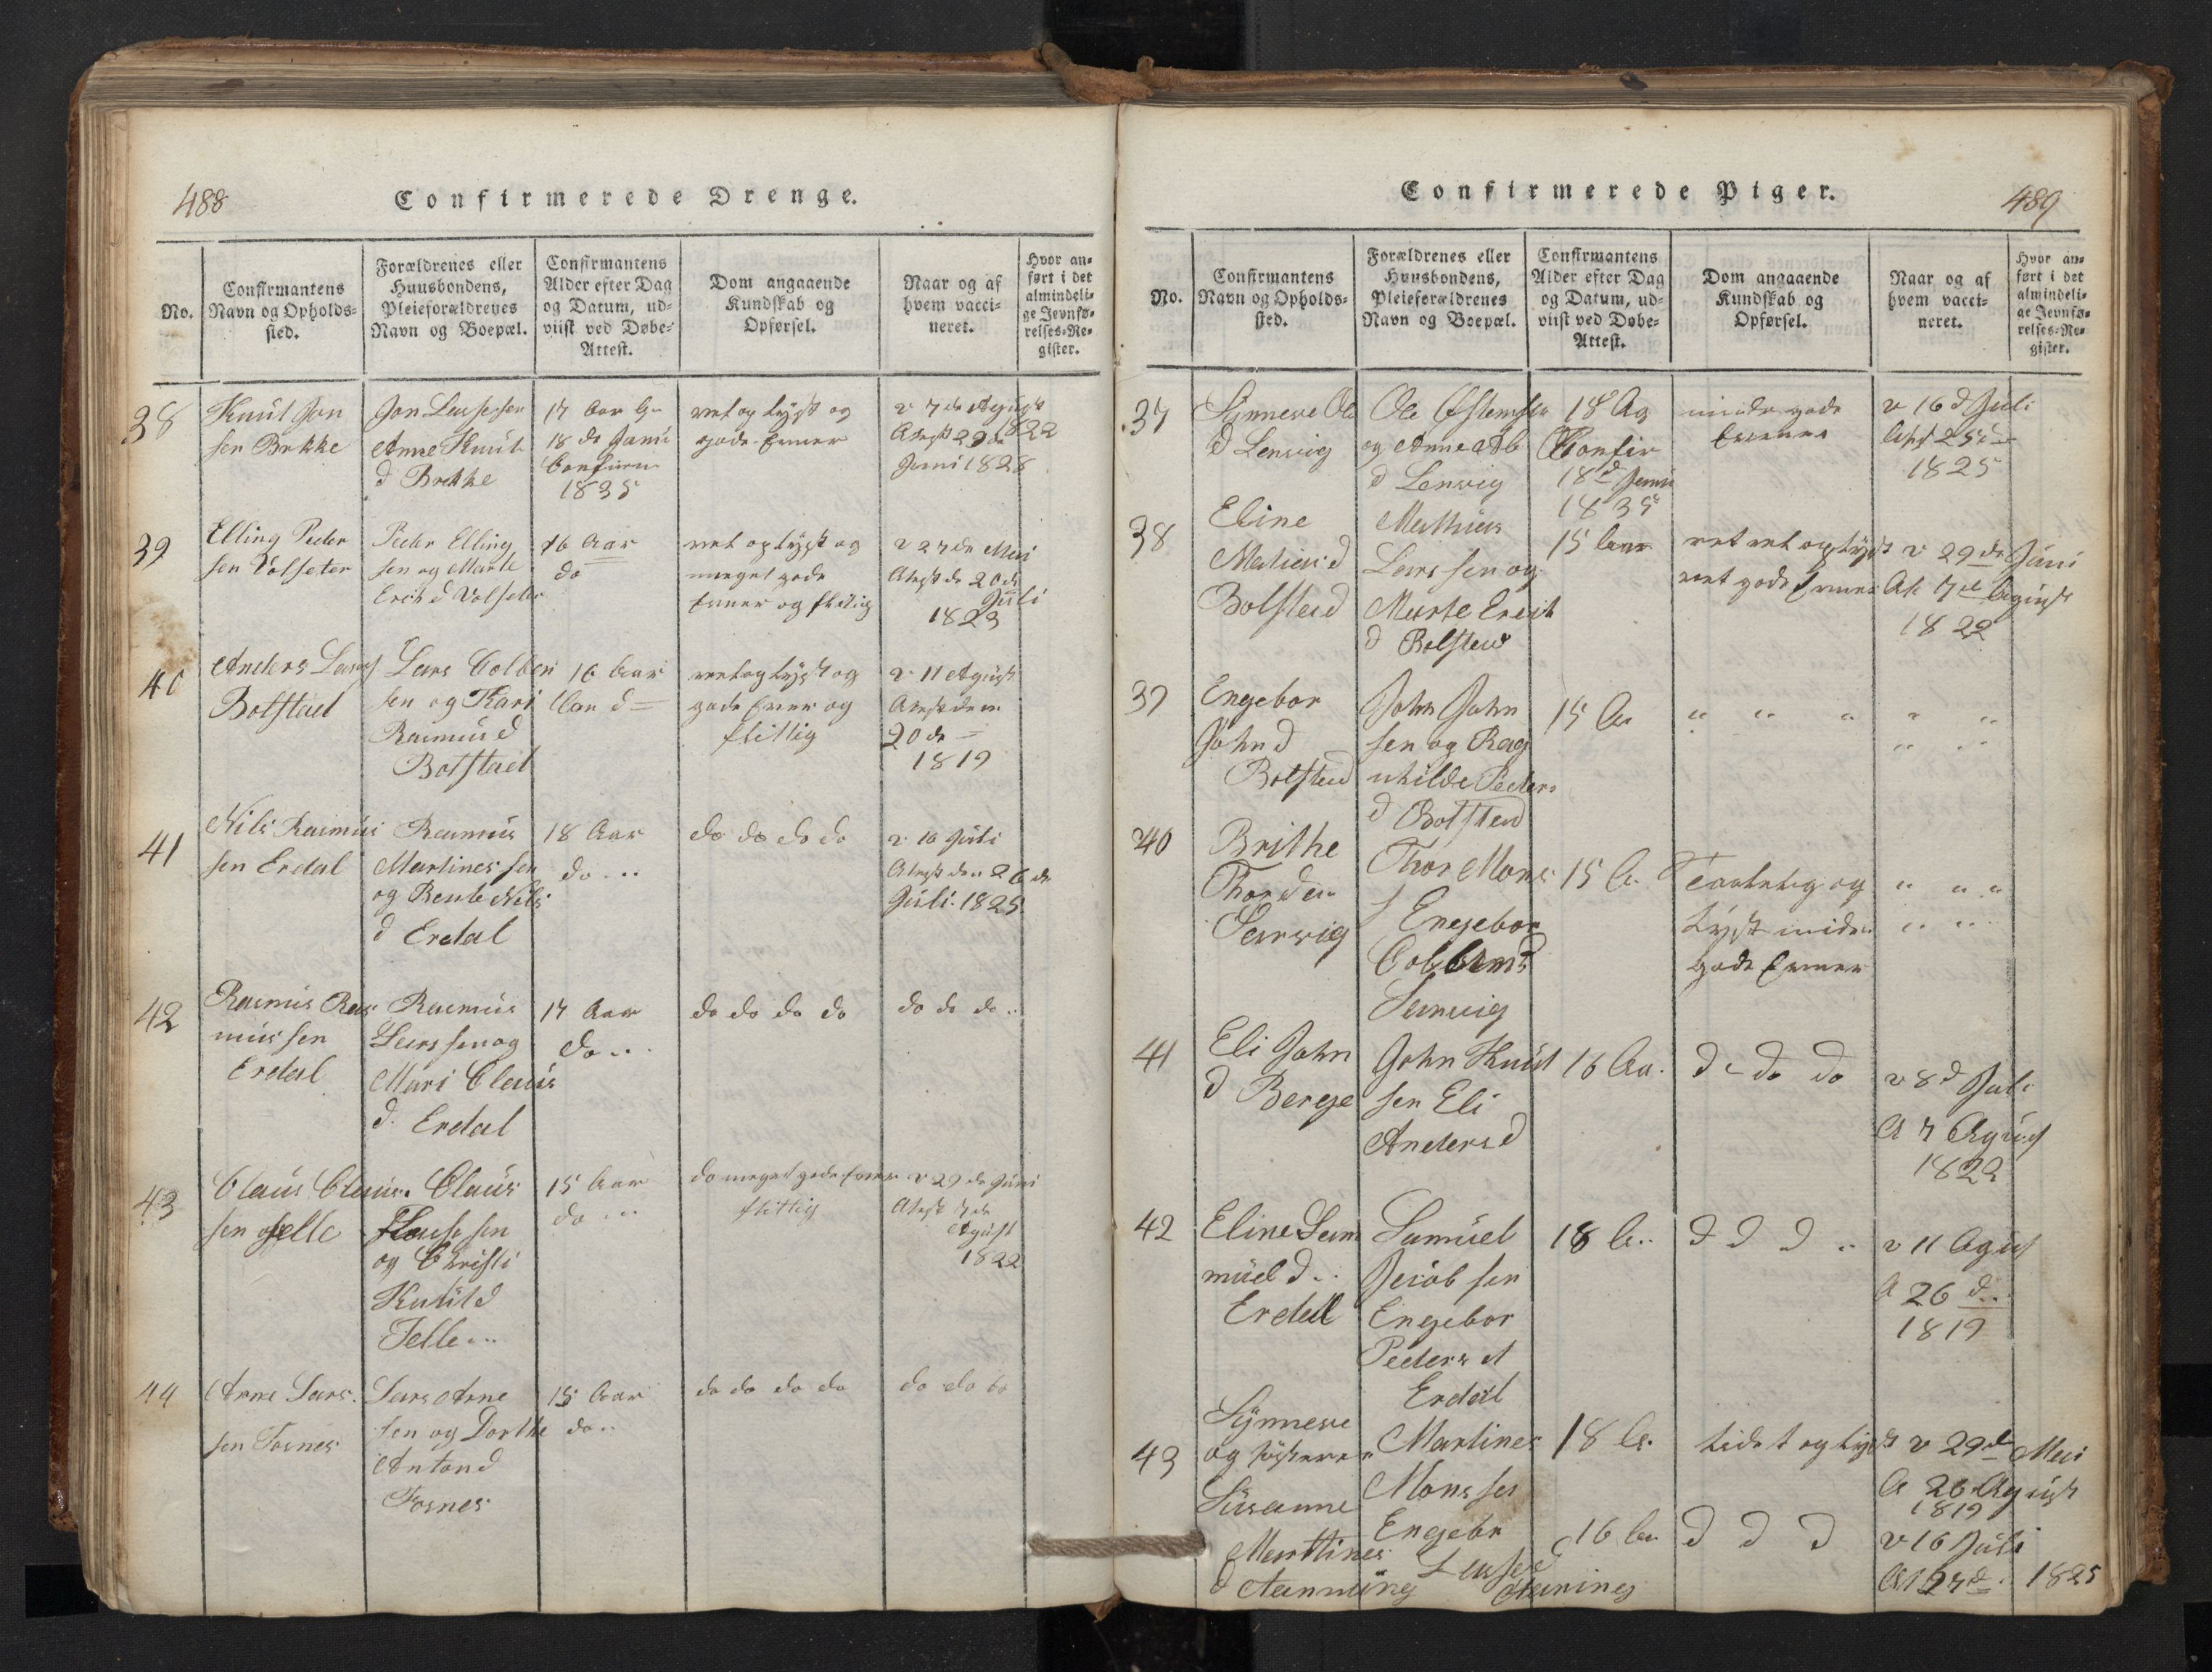 488
Confirmerede Drenge.
No.
Confirmantens
Navn og Opholds-
sted.
Forældrenes eller
Huusbondens,
Pleieforældrenes
Navn og Boepæl.
Confirmantens
Alder efter Dag
og Datum, ud-
viist ved Døbe-
Attest.
Dom angaaende
Kundskab og
Opførsel.
Naar og af
hvem vacci-
neret.
Hvor an-
ført i det
almindeli-
ge Jevnfø-
relses-Re-
gister.
38
Knut Jon
sen Brekke
Jon Lassesen
Anne Knut
d Brekke
17 Aar
18 de Juni
Confirm
1835
ret oplyst og
gode Evner
v 7 de Agust
Atest 29 de 1822
Juni 1828
39
Elling Peder
sen Volseter
Peder Elling
sen og Marte
Erik d Volseter
16 Aar
do
ret oplyst og
meget gode
Evner og flitig
v 27 de Mai
Atest de 20 de
Juli
1823
40
Anders Lars
Botstad
Lars Colben
sen og Kari
Rasmus d
Botstad
16 Aar
ret oplyst og
gode Evner og
flittig
v 11 Agust
Atest den
20 de
1819
41
Nils Rasmus
sen Erdal
Rasmus
Martines sen
og Bente Nils
d Erdal
18 Aar
do ...
do do do do
v 16 Juli
Atest den 26 de
Juli 1825
42
Rasmus Ras
mus sen
Erdal
Rasmus
Lars sen og
Mari Claus
d. Erdal
17 Aar
do ...
do do do do
do do do ..
43
Claus Claus.
sen Felle
Claus
Clause sen
og Christi
Knut d
Felle ...
15 Aar
do ...
do meget gode Evner
flittig
v 29 de Juni
Atest 7 de
Agust
1822
44
Arne Lars.
sen Fosnes
Lars Arne
sen og Dorthe
Anton d
Fosnes
15 Aar
do ..
do do do do
do do do
489
Confirmerede Piger.
No.
Confirmantens
Navn og Opholds-
sted.
Forældrenes eller
Huusbondens,
Pleieforældrenes
Navn og Boepæl.
Confirmantens
Alder efter Dag
og Datum, ud-
viist ved Døbe-
Attest.
Dom angaaende
Kundskab og
Opførsel.
Naar og af
hvem vacci-
neret.
Hvor an-
ført i det
almindeli-
ge Jevnfø-
relses-Re-
gister.
37
Synneve Ole
d Lenvig
Ole Østensen
og Anne
d Lenvig
18 Ag
Confir
18 d Juni
1835
minde gode
Evner
v 16 d Juli
1825
38
Eline
Matias d
Bolstad
Mathias
Lars sen og
Marte Erick
d Bolstad
15 Aar
ret oplyst
ret gode Evner
v 29 de Juni
At 7 de Agust
1822
39
Engebor
John d
Botsted
John John
sen og Rag
nhilde Peder
d Botsted
15 Aa
" " " " "
" "
40
Brithe
Thor den
Lenvig
Thor Mons
s Engebor
d
Lenvig
15 A.
og
Lyst minder
gode Evner
" " "
" "
41
Eli John
d Berge
John Knut
sen Eli
Anders d
16 Aa.
do do do
v 8 d Juli
A 7 Agust
1822
42
Eline Sam
muel d ..
Erdal
Samuel
Jacob sen
Engebor
Peders d
Erdal
18 A..
d d d ..
v 11 Agust
A 26 d ..
1819
43
Synneve
og søsteren
Susanne
Marttines
d Aanning
Martines
Mons sen
Engebr
Lasse d
Aaning
18 A.
16 Aa
lidet oplyst
d d d
v 29 d Mai
A 26 Agust
1819
v 16 Juli
At 27 d. 1825